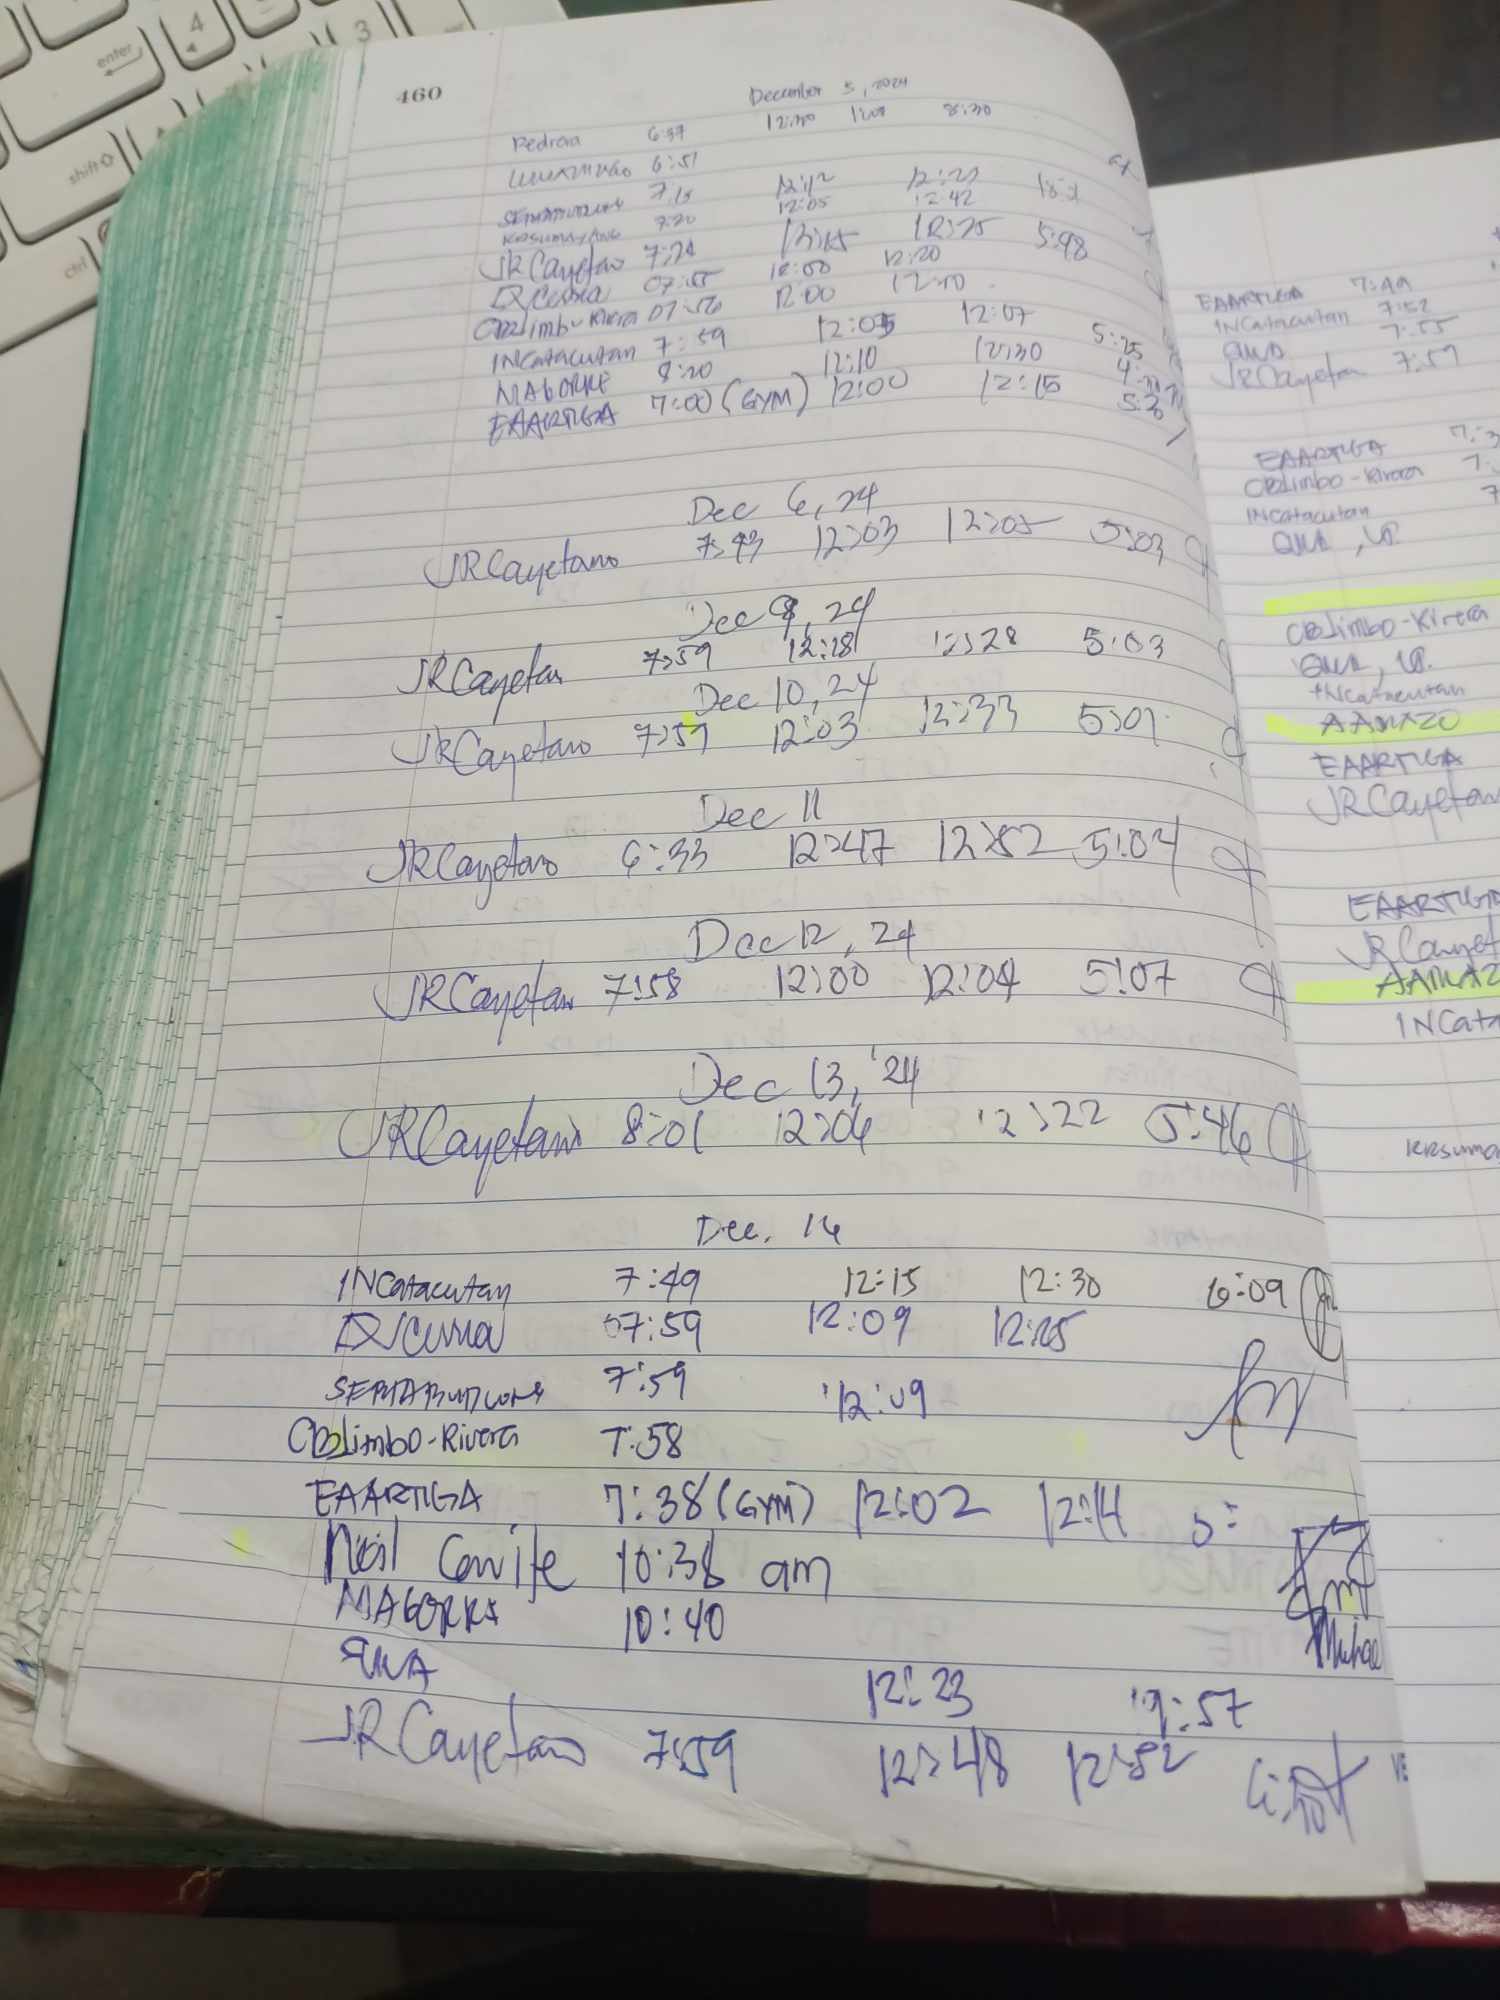 enter
4
3
shift
ctrl
460
December 5, 2024
Pedrera 6:37 12:30 1:00 8:30
6:51
7:15 12:12 12:22
7:20 12:05 12:42
JRCayetano 7:24 12:15 12:25 5:48
07:55 12:00 12:20
CBLimbo-Rivera 07:56 12:00 12:10
INCatacutan 7:59 12:05 12:07 5:25
MAGORRE 8:20 12:10 12:30
EAARTIGA 7:00 (GYM) 12:00 12:15 5:30
Dec 6, 24
JRCayetano 7:43 12:03 12:05 5:03
Dec 9, 24
JRCayetano 7:59 12:18 12:28 5:03
Dec 10, 24
JRCayetano 7:57 12:03 12:33 5:01
Dec 11
JRCayetano 6:33 12:47 12:52 5:04
Dec 12, 24
JRCayetano 7:58 12:00 12:04 5:07
Dec 13, '24
JRCayetano 8:01 12:06 12:22 5:46
Dec. 16
INCatacutan 7:49 12:15 12:30 6:09
07:59 12:09 12:25
7:59 12:09
CBLimbo-Rivera 7:58
EAARTIGA 7:38 (GYM) 12:02 12:14 5:
Neil Cavite 10:38 am
MAGORRE 10:40
12:23 12:57
JRCayetano 7:59 12:48 12:52
EAARTIGA 7:49
INCatacutan 7:52
7:55
JRCayetano 7:57
EAARTIGA 7:3
CBLimbo-Rivera 7:
INCatacutan 7
CBLimbo-Rivera
INCatacutan
AAMAZO
EAARTIGA
JRCayetan
EAARTIGA
JRCayet
AAMAZ
INCata
KRSuma